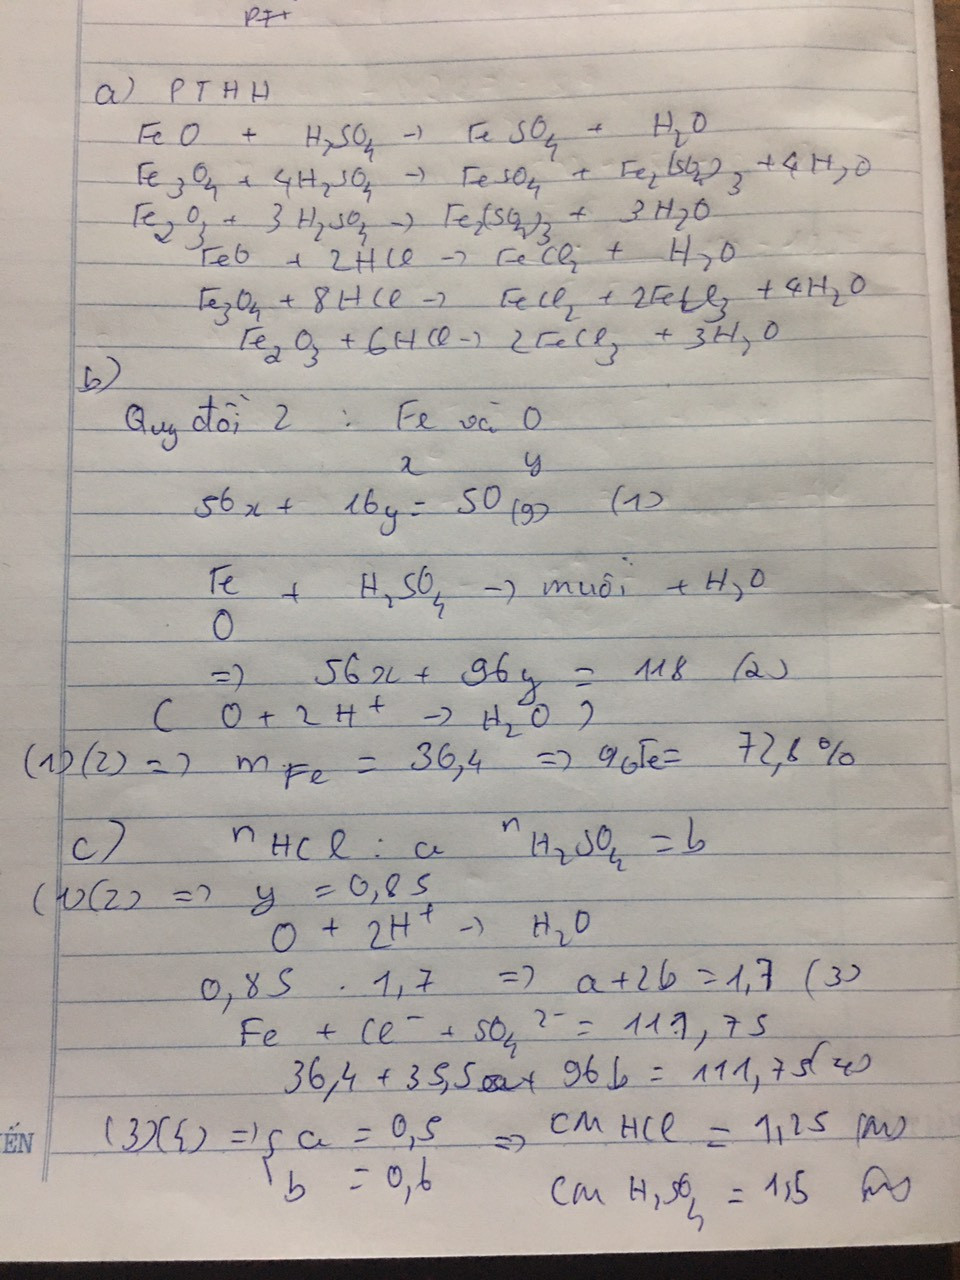 PT+
a) PTHH
FeO + H₂SO₄ → FeSO₄ + H₂O
Fe₃O₄ + 4H₂SO₄ → FeSO₄ + Fe₂(SO₄)₃ + 4H₂O
Fe₂O₃ + 3H₂SO₄ → Fe₂(SO₄)₃ + 3H₂O
FeO + 2HCl → FeCl₂ + H₂O
Fe₃O₄ + 8HCl → FeCl₂ + 2FeCl₃ + 4H₂O
Fe₂O₃ + 6HCl → 2FeCl₃ + 3H₂O
b)
Quy đổi 2 : Fe và O
x y
56x + 16y = 50 (g) (1)
Fe + H₂SO₄ → muối + H₂O
O
=> 56x + 96y = 118 (2)
( O + 2H⁺ → H₂O )
(1)(2) => mFe = 36,4 => %Fe = 72,8%
c) nHCl : a nH₂SO₄ = b
(1)(2) => y = 0,85
O + 2H⁺ → H₂O
0,85 . 1,7 => a + 2b = 1,7 (3)
Fe + Cl⁻ + SO₄²⁻ = 111,75
36,4 + 35,5a + 96b = 111,75 (4)
(3)(4) => { a = 0,5 => CM HCl = 1,25 (M)
b = 0,6 CM H₂SO₄ = 1,5 (M)
ẾN